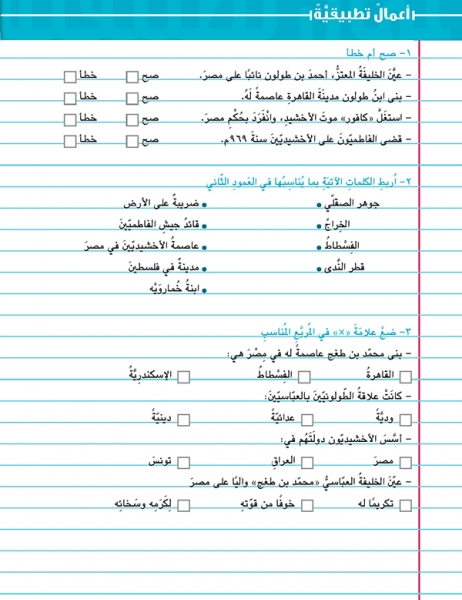 أعمالٌ تطبيقيَّة
١- صح أم خطأ
- عيَّنَ الخليفَةُ المعتزُّ، أحمدَ بن طولون نائبًا على مصرَ. صح خطأ
- بنى ابنُ طولون مدينَةَ القاهرةِ عاصمةً لَهُ. صح خطأ
- استغلَّ «كافور» موتَ الأخشيدِ، وانْفَرَدَ بحُكْمِ مصرَ. صح خطأ
- قضى الفاطميّونَ على الأخشيديّينَ سنةَ ٩٦٩م. صح خطأ
٢- أربطِ الكلماتِ الآتيَةِ بما يُناسِبُها في العمودِ الثّاني
جوهر الصقلّي • • ضريبةٌ على الأرض
الخِراجُ • • قائدُ جيشِ الفاطميّينَ
الفِسْطاطُ • • عاصمةُ الأخشيديّينَ في مصرَ
قطر النَّدى • • مدينةٌ في فلسطينَ
• ابنةُ خُمارَوَيْه
٣- ضعْ علامَةَ «×» في المُربَّعِ المُناسبِ
- بنى محمّد بن طغج عاصمةً له في مِصْرَ هي:
القاهرةُ الفِسْطاطُ الإسكندريَّةُ
- كانَتْ علاقةُ الطّولونيّينَ بالعبّاسيّينَ:
وديَّةٌ عدائيَّةٌ دينيَّةٌ
- أسَّسَ الأخشيديّون دولَتَهُم في:
مصرَ العراقِ تونسَ
- عيَّنَ الخليفةُ العبّاسيُّ «محمّد بن طغج» واليًا على مصرَ
تكريمًا له خوفًا من قوّتِهِ لِكَرَمِهِ وسَخائِهِ